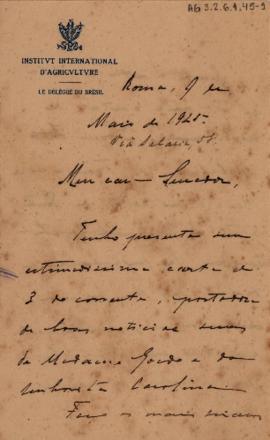 AG 3.2.6.1,45-9
INSTITVT INTERNATIONAL
D'AGRICVLTVRE
LE DÉLÉGUÉ DU BRÉSIL
Roma, 9 de
Maio de 1925
Via Salaria,
Meu caro Senador,
Tenho presente sua
estimadissima carta de
3 do corrente, portadora
de boas noticias suas
da Madame e da
senhorita Carolina.
Faço os mais